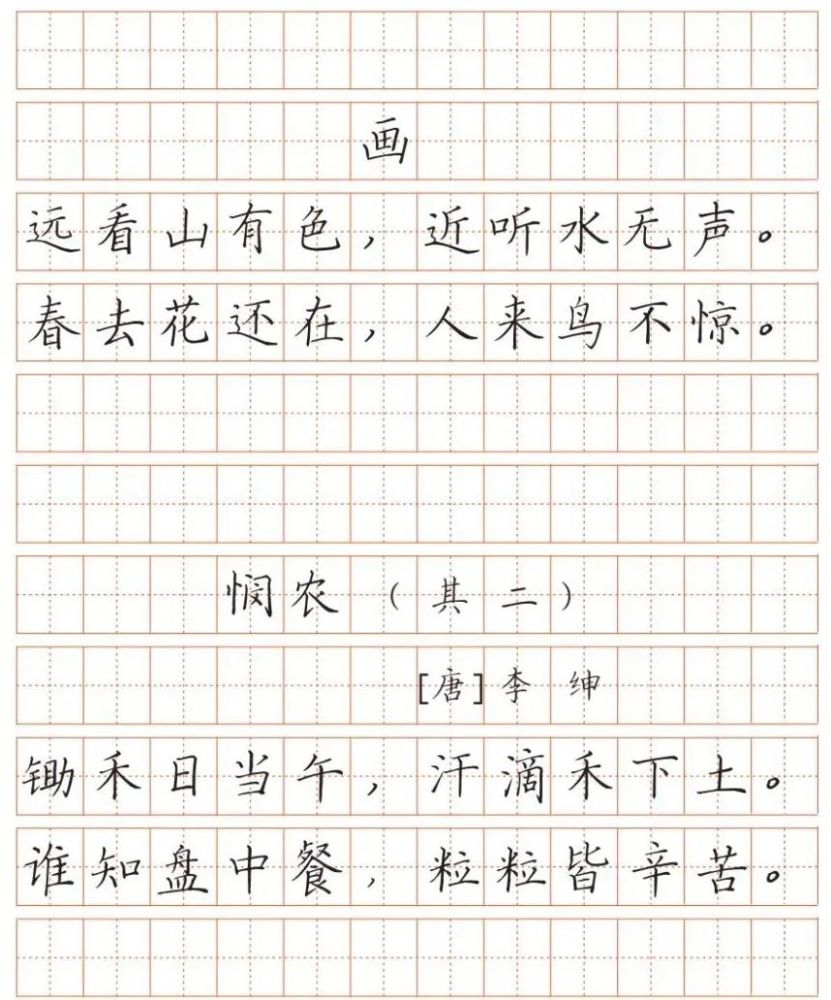 画
远看山有色，近听水无声。
春去花还在，人来鸟不惊。
悯农（其二）
[唐]李绅
锄禾日当午，汗滴禾下土。
谁知盘中餐，粒粒皆辛苦。